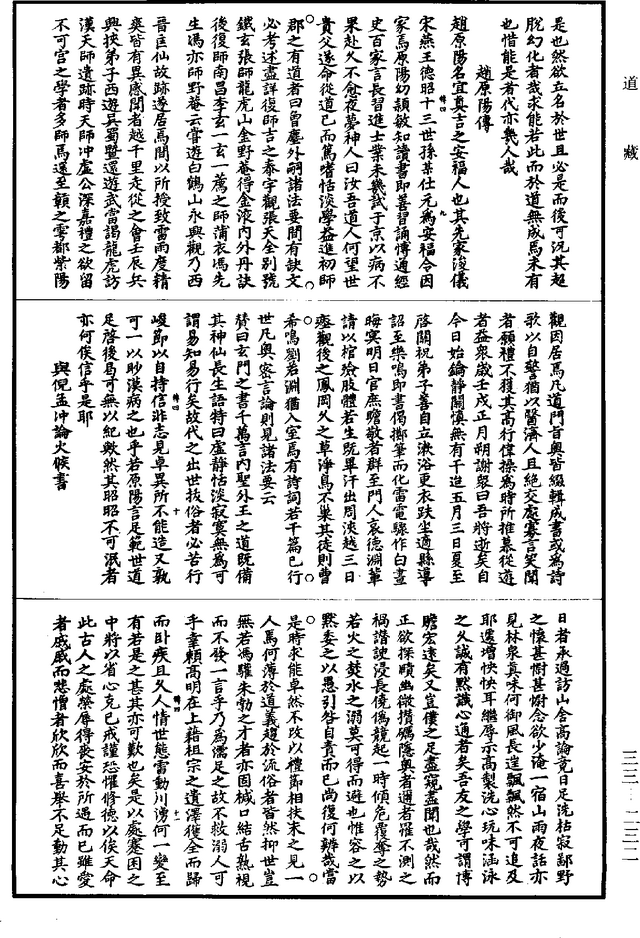 道藏
是也然欲立名於世且必是而後可況其超
脫幻化者哉求能若此而於道無成焉未有
也惜能是者代亦幾人哉
趙原陽傳
趙原陽名宜真吉之安福人也其先家浚儀
宋燕王德昭十三世孫某仕元為安福令因
家焉原陽幻穎敏知讀書即善習誦博通經
史百家言長習進士業未幾試于京以病不
果赴久不愈夜夢神人曰汝吾道人何望世
貴父遂命從道已而篤嗜恬淡學益進初師
郡之有道者曰曾塵外嗣諸法要間有缺文
必考述盡詳復師吉之泰宇觀張天全別號
鐵玄張師龍虎山金野菴得金液內外丹訣
後復師南昌李玄一玄一薦之師蒲衣馮先
生馮亦師野菴云嘗遊白鶴山永興觀乃西
晉匡仙故跡遂居焉間以所授致雷雨度精
爽皆有異感聞者越千里走從之會壬辰兵
興挾弟子西遊吳蜀暨還遊武當謁龍虎訪
漢天師遺跡時天師沖虛公深嘉禮之欲留
不可宮之學者多師焉還至贛之雩都紫陽
觀因居焉凡道門旨奧皆綴輯成書或為詩
歌以自警猶以醫濟人且絕交處寡言笑聞
者願禮不獲其高行偉操為時所推慕從遊
者益衆歲壬戌正月朔謝衆曰吾將逝矣自
今日始鑰靜關慎無有干迨五月三日夏至
啓關祝弟子善自立漱浴更衣趺坐適縣導
詔至樂鳴即書偈擲筆而化雷電驟作白晝
晦冥明日官庶瞻敬者群至門人哀德淵輩
請以棺殮肢體若生既畢汗出周浹越三日
瘞觀後之鳳岡久之草淨鳥不巢其徒則曹
希鳴劉若淵猶入室焉有詩詞若千篇已行
世凡奧密言論則見諸法要云
贊曰玄門之書千萬言內聖外王之道既備
其神仙長生語特曰虛靜恬淡寂寞無為可
謂易知易行矣故代之出世技俗者必苦行
峻節以自持信非志見卓異所不能造又孰
可一以眇漠病之也乎若原陽言足範世道
足啓後曷可無以紀歟然其昭昭不可泯者
亦何俟信乎是耶
與倪孟沖論火候書
日者承過訪山舍高論竟日足洗枯寂鄙野
之懷甚慰甚慰念欲少淹一宿山雨夜話亦
見林泉真味何御風長達飄飄然不可追及
耶還增怏怏耳繼辱示高製洗心玩味涵泳
之久誠有默識心通者矣吾友之學可謂博
瞻宏遠矣又豈僕之足盡窺盡聞也哉然而
正欲探賾幽微攢礪隱奧者邇者罹不測之
禍譖謗浸長僥偽競起一時傾危覆奪之勢
若火之焚水之溺莫可得而避也惟容之以
默委之以愚引咎自責而已尚復何辨哉當
是時求能卓然不改以禮節相扶未之見一
人焉何薄於道義趨於流俗者皆然抑世豈
無若馮驩朱勃之才者亦固械口結舌熟視
而不發一言乎乃為濡足之故不救溺人可
乎韋賴高明在上藉祖宗之遺澤獲全而歸
而臥疾且久人情世態雷動川湧何一變至
有若是之甚其亦可歎也矣是以處蹇困之
中將以省心克已戒謹恐懼修德以俟天命
此古人之處榮辱得喪安於所遇而已雖愛
者戚戚而悲憎者欣欣而喜舉不足動其心
三三—二三二